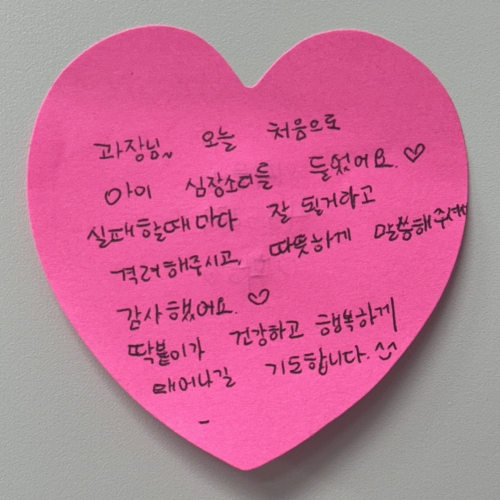 과장님, 오늘 처음으로
아이 심장소리를 들었어요.♡
실패할때마다 잘 될거라고
격려해주시고, 따뜻하게 말씀해주셔서
감사했어요.♡
딱붙이가 건강하고 행복하게
태어나길 기도합니다.^^
-